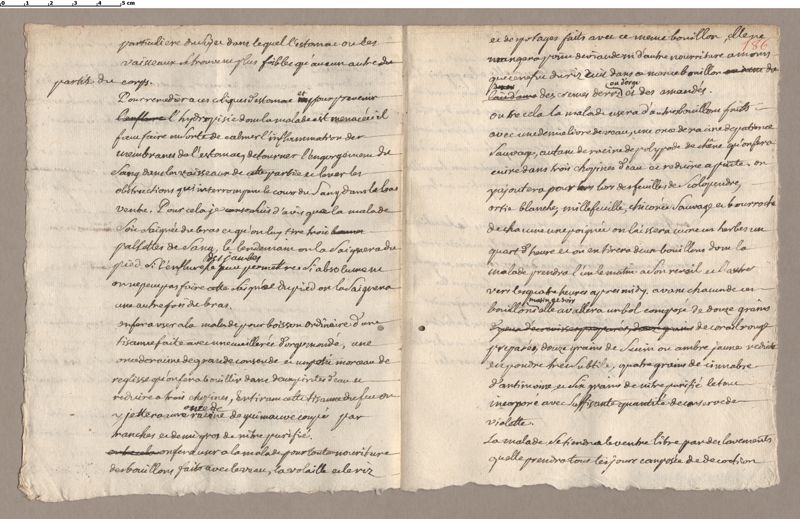 particuliere du foyer dans lequel l'estomac ou les
vaisseaux se trouvent plus foibles que aucun autre du
partie du corps.
Pour remedier a ces coliques d'estomac et pour prevenir
l'enflure l'hydropisie dont la malade est menacée il
faut faire en sorte de calmer l'inflammation des
membranes de l'estomac, detourner l'engorgement du
sang dans les vaisseaux de cette partie et lever les
obstructions qui interrompent le cours du sang dans le bas
ventre. Pour cela je suis d'avis que la malade
soit saignée du bras et qu'on luy tire trois
pallettes de sang, le lendemain on la saignera du
pied si l'enflure des jambes le peut permettre si absolument
on ne peut pas faire cette saignée du pied on la saignera
une autre fois du bras.
on fera user a la malade pour boisson ordinaire d'une
tisanne faite avec une cuillerée d'orge mondé, une
once de racine de grande consoude et un petit morceau de
reglisse qu'on fera bouillir dans deux pintes d'eau et
reduire a trois chopines, en tirant cette tisanne du feu on
y jettera une once de racine de guimauve coupée par
tranches et demi gros de nitre purifié.
on fera user a la malade pour toute nourriture
des bouillons faits avec le veau, la volaille et le riz
186
et de potages faits avec ce meme bouillon, elle ne
mangera point de viande ni d'autre nourriture a moins
que ce ne fut du riz cuit dans ce meme bouillon
des cremes de riz ou d'orge et des amandes.
outre cela la malade usera d'autres bouillons faits
avec une demie livre de veau, une once de racine de patience
sauvage, autant de racine de polypode de chêne qu'on fera
cuire dans trois chopines d'eau et reduire a pinte. on
y ajoutera pour lors des feuilles de scolopendre,
ortie blanche, millefeuille, chicorée sauvage et bourroche
de chacune une poignée on laissera cuire ces herbes un
quart d'heure et on en tirera deux bouillons dont la
malade prendra l'un le matin a son reveil et l'autre
vers les quatre heures apres midy. avant chacun de ces
bouillons matin et soir elle avallera un bol composé de douze grains
d'yeux d'ecrevisses preparés, de corail rouge
preparé, douze grains de succin ou ambre jaune reduit
en poudre tres subtile, quatre grains de cinnabre
d'antimoine et six grains de nitre purifié le tout
incorporé avec suffisante quantité de conserve de
violette.
La malade se tiendra le ventre libre par des lavements
qu'elle prendra tous les jours composés de decoction